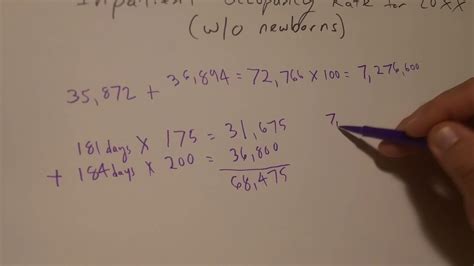 Inpatient Occupancy Rate for 20XX
(w/o newborns)
35,872 + 36,894 = 72,766 x 100 = 7,276,600
181 days x 175 = 31,675
+ 184 days x 200 = 36,800
68,475
7,